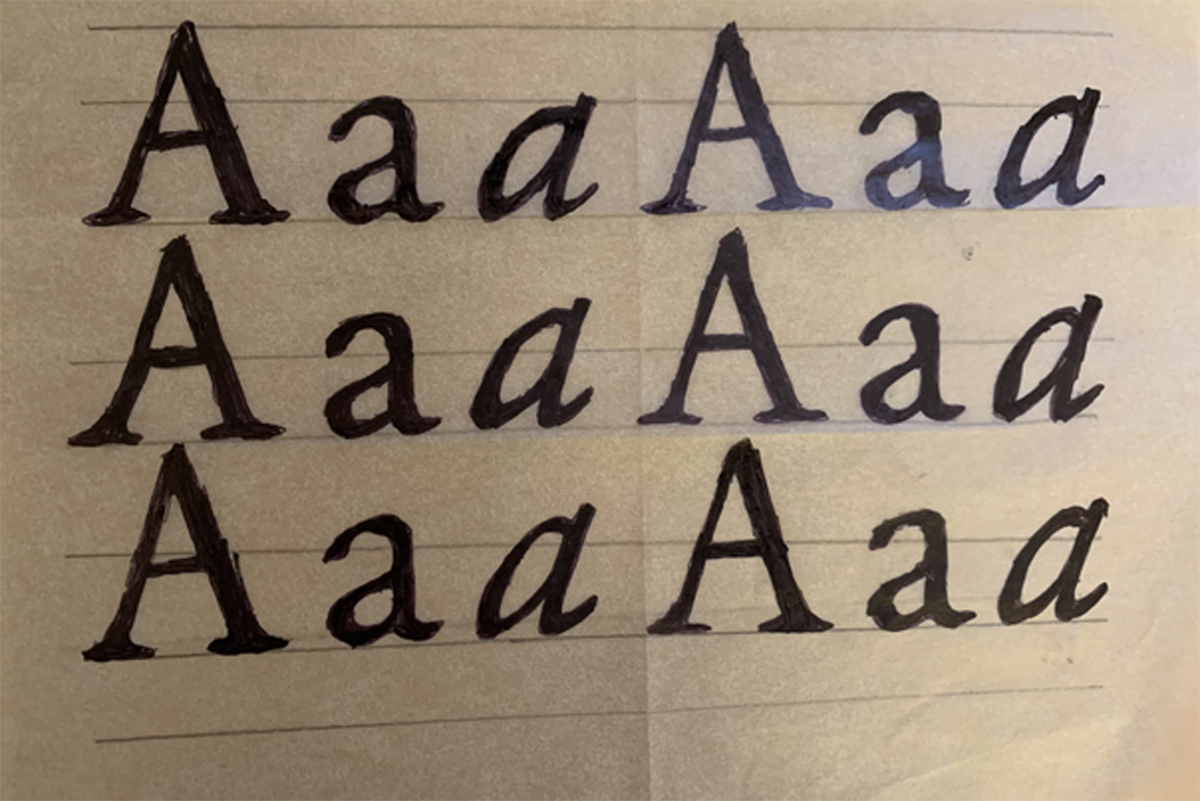 A a a A a a
A a a A a a
A a a A a a